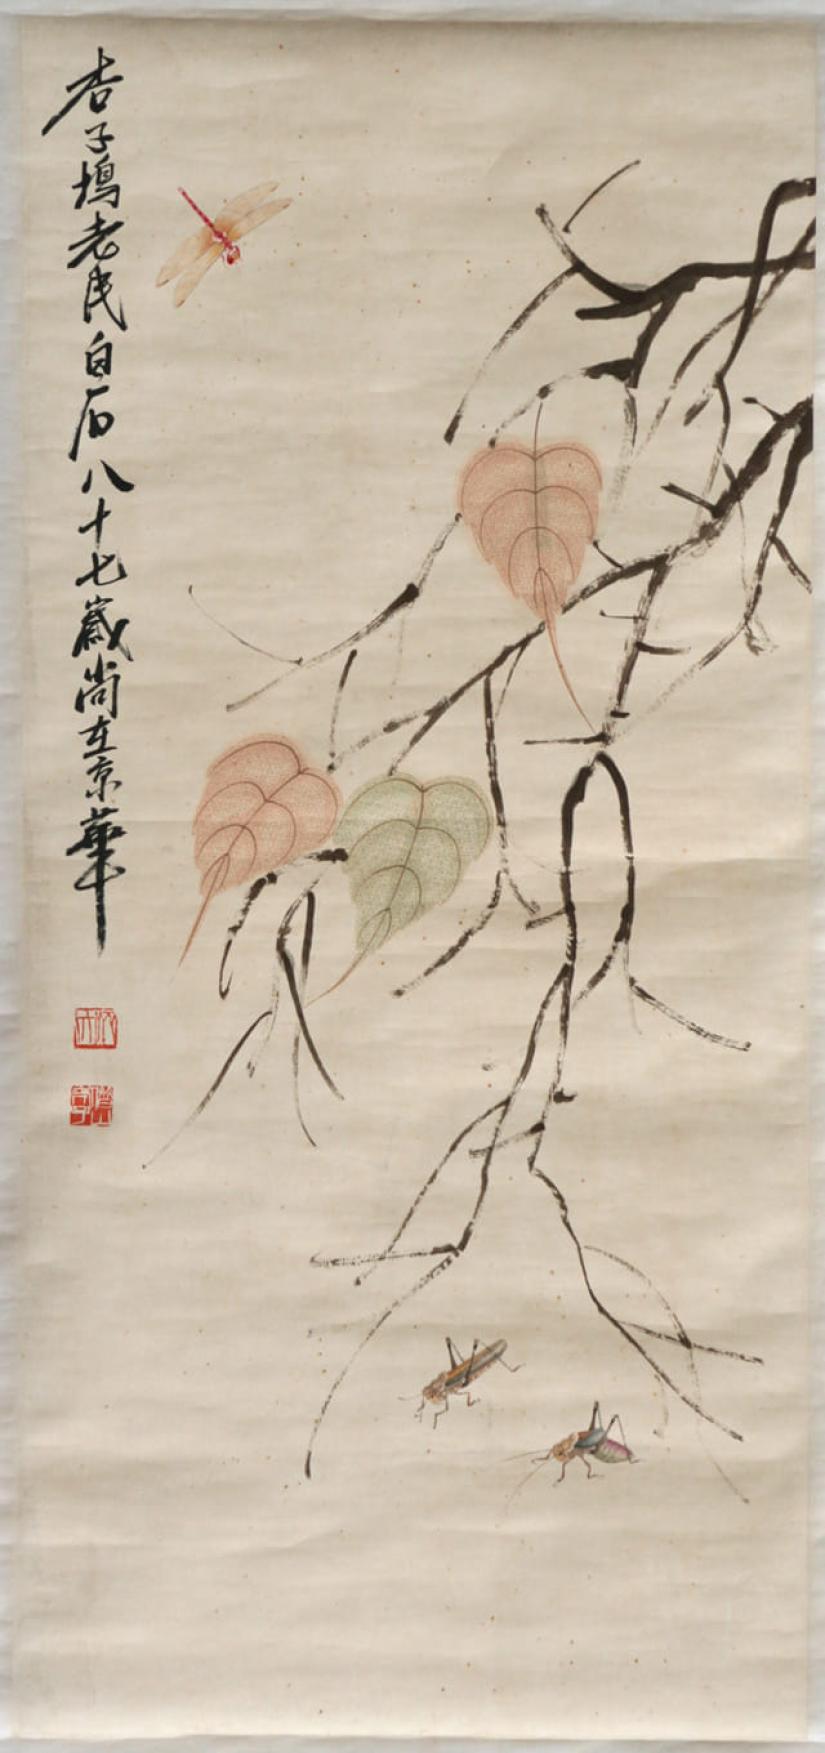 杏子塢老民白石八十七歲尚在京華